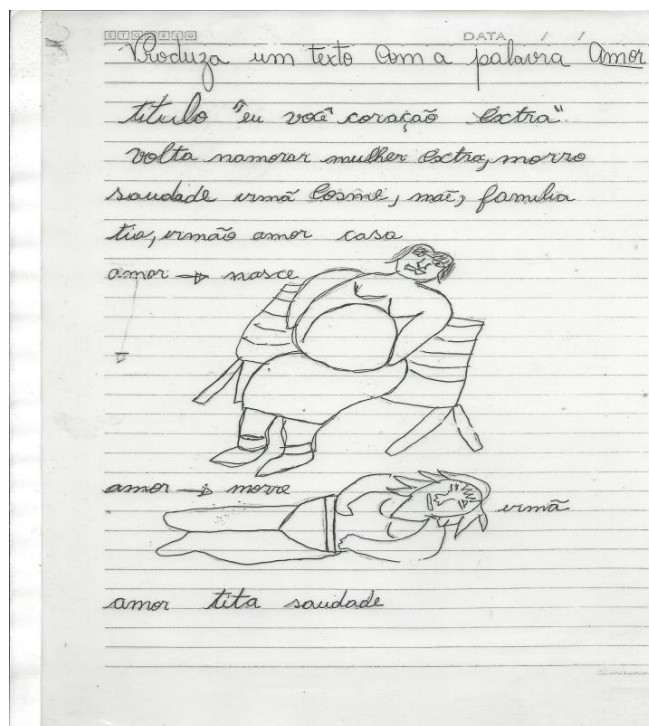 DATA / /
Produza um texto com a palavra Amor
título "eu você coração extra"
volta namorar mulher extra, morro
saudade irmã Cosme, mãe, familia
tia, irmão amor casa
amor → nasce
amor → morre
irmã
amor tita saudade